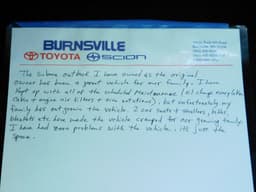 BURNSVILLE
TOYOTA SCION
The subaru outback I have owned as the original
owner has been a great vehicle for our family. I have
kept up with all of the scheduled maintenance (oil change every
Cabin + engine air filters + tire rotations). but unfortunately my
family has out grown the vehicle. 2 car seats + strollers, toys,
blankets etc have made the vehicle cramped for our growing family.
I have had zero problems with the vehicle. its just the
space.